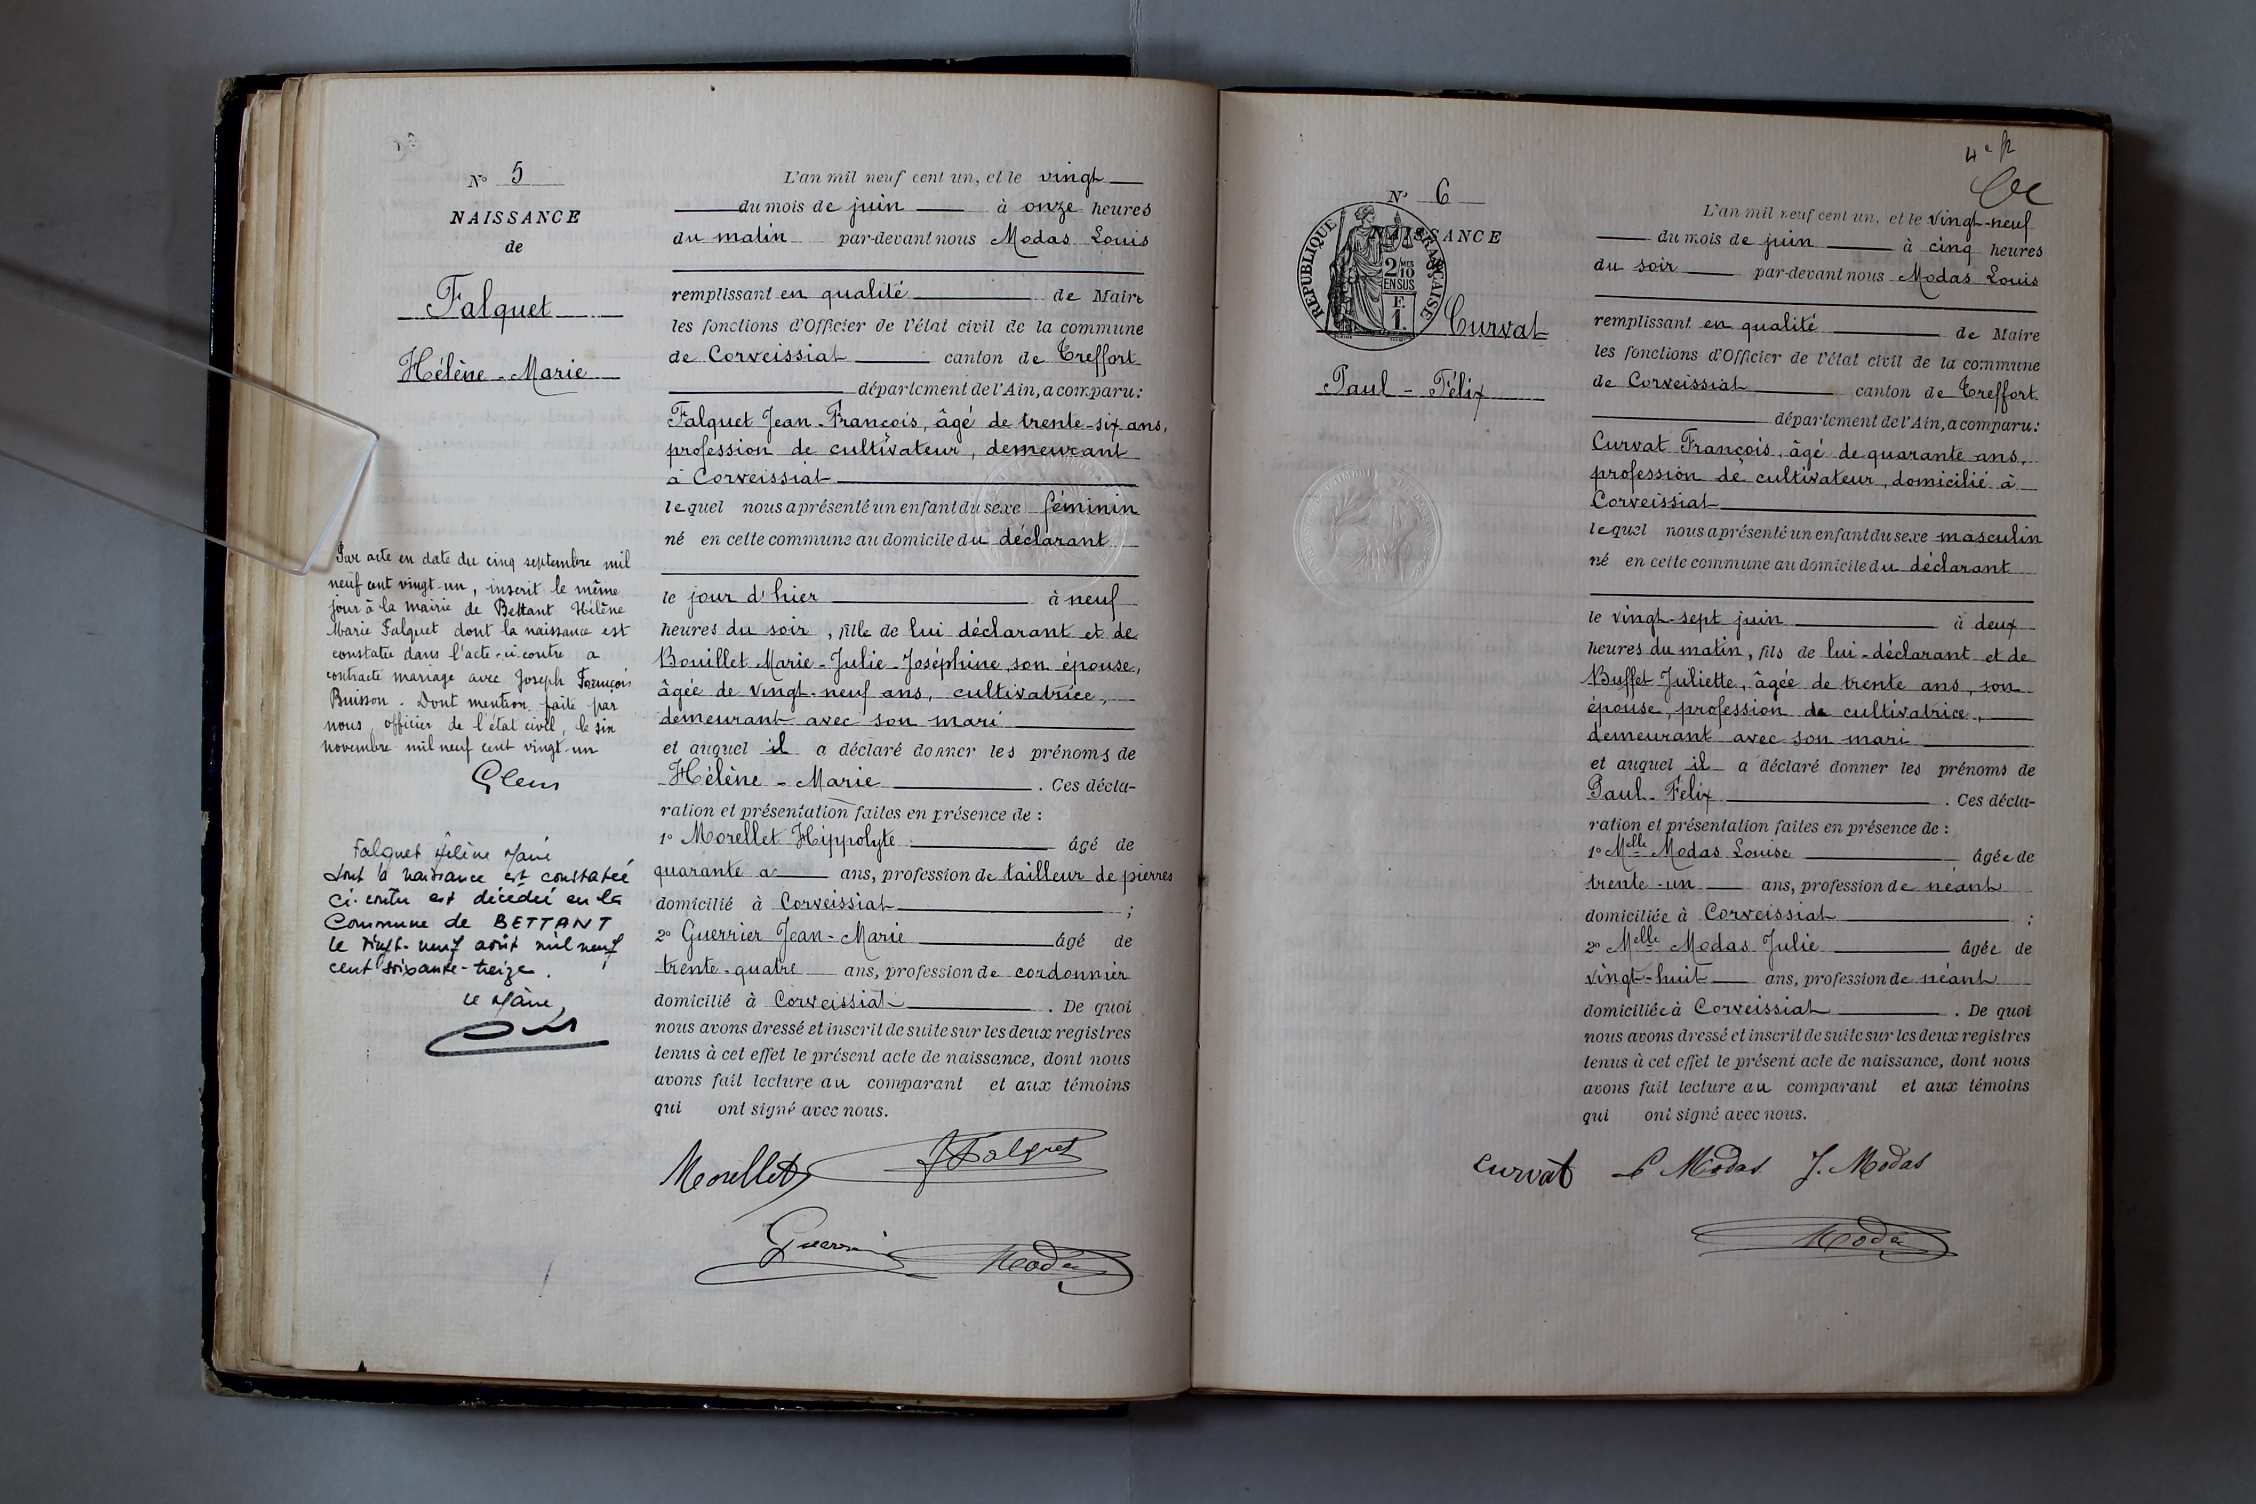 N° 5
NAISSANCE
de
Falquet
Hélène - Marie
Par acte en date du cinq septembre mil
neuf cent vingt-un, inscrit le même
jour à la mairie de Bettant Hélène
Marie Falquet dont la naissance est
constatée dans l'acte ci-contre a
contracté mariage avec Joseph François
Buisson. Dont mention faite par
nous officier de l'état civil, le six
novembre mil neuf cent vingt-un
Falquet Hélène Marie
dont la naissance est constatée
ci-contre est décédée en la
Commune de BETTANT
le vingt-neuf août mil neuf
cent soixante-treize.
Le Maire,
L'an mil neuf cent un, et le vingt
du mois de juin à onze heures
du matin par-devant nous Modas Louis
remplissant en qualité de Maire
les fonctions d'Officier de l'état civil de la commune
de Corveissiat canton de Treffort
département de l'Ain, a comparu:
Falquet Jean-François, âgé de trente-six ans,
profession de cultivateur, demeurant
à Corveissiat
lequel nous a présenté un enfant du sexe féminin
né en cette commune au domicile du déclarant
le jour d'hier à neuf
heures du soir, fille de lui déclarant et de
Bouillet Marie-Julie-Joséphine, son épouse,
âgée de vingt-neuf ans, cultivatrice,
demeurant avec son mari
et auquel il a déclaré donner les prénoms de
Hélène - Marie. Ces décla-
ration et présentation faites en présence de :
1° Morellet Hippolyte âgé de
quarante ans, profession de tailleur de pierres
domicilié à Corveissiat ;
2° Guerrier Jean-Marie âgé de
trente-quatre ans, profession de cordonnier
domicilié à Corveissiat. De quoi
nous avons dressé et inscrit de suite sur les deux registres
tenus à cet effet le présent acte de naissance, dont nous
avons fait lecture au comparant et aux témoins
qui ont signé avec nous.
Morellet J Falquet
Guerrier Modas
4e
N° 6
NAISSANCE
REPUBLIQUE FRANÇAISE
2/10 MES
EN SUS
F.
1.
Curvat
Paul - Félix
L'an mil neuf cent un, et le vingt-neuf
du mois de juin à cinq heures
du soir par-devant nous Modas Louis
remplissant en qualité de Maire
les fonctions d'Officier de l'état civil de la commune
de Corveissiat canton de Treffort
département de l'Ain, a comparu:
Curvat François, âgé de quarante ans,
profession de cultivateur, domicilié à
Corveissiat
lequel nous a présenté un enfant du sexe masculin
né en cette commune au domicile du déclarant
le vingt-sept juin à deux
heures du matin, fils de lui-déclarant et de
Buffet Juliette, âgée de trente ans, son
épouse, profession de cultivatrice,
demeurant avec son mari
et auquel il a déclaré donner les prénoms de
Paul-Félix. Ces décla-
ration et présentation faites en présence de :
1° Melle Modas Louise âgée de
trente-un ans, profession de néant
domiciliée à Corveissiat ;
2° Melle Modas Julie âgée de
vingt-huit ans, profession de néant
domiciliée à Corveissiat. De quoi
nous avons dressé et inscrit de suite sur les deux registres
tenus à cet effet le présent acte de naissance, dont nous
avons fait lecture au comparant et aux témoins
qui ont signé avec nous.
Curvat L Modas J. Modas
Modas